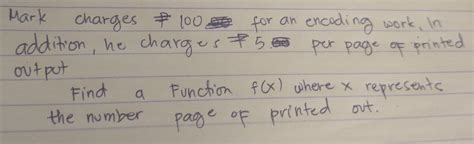 Mark charges ₱ 100 for an encoding work. In
addition, he charges ₱ 5 per page of printed
output
Find a Function f(x) where x represents
the number page of printed out.